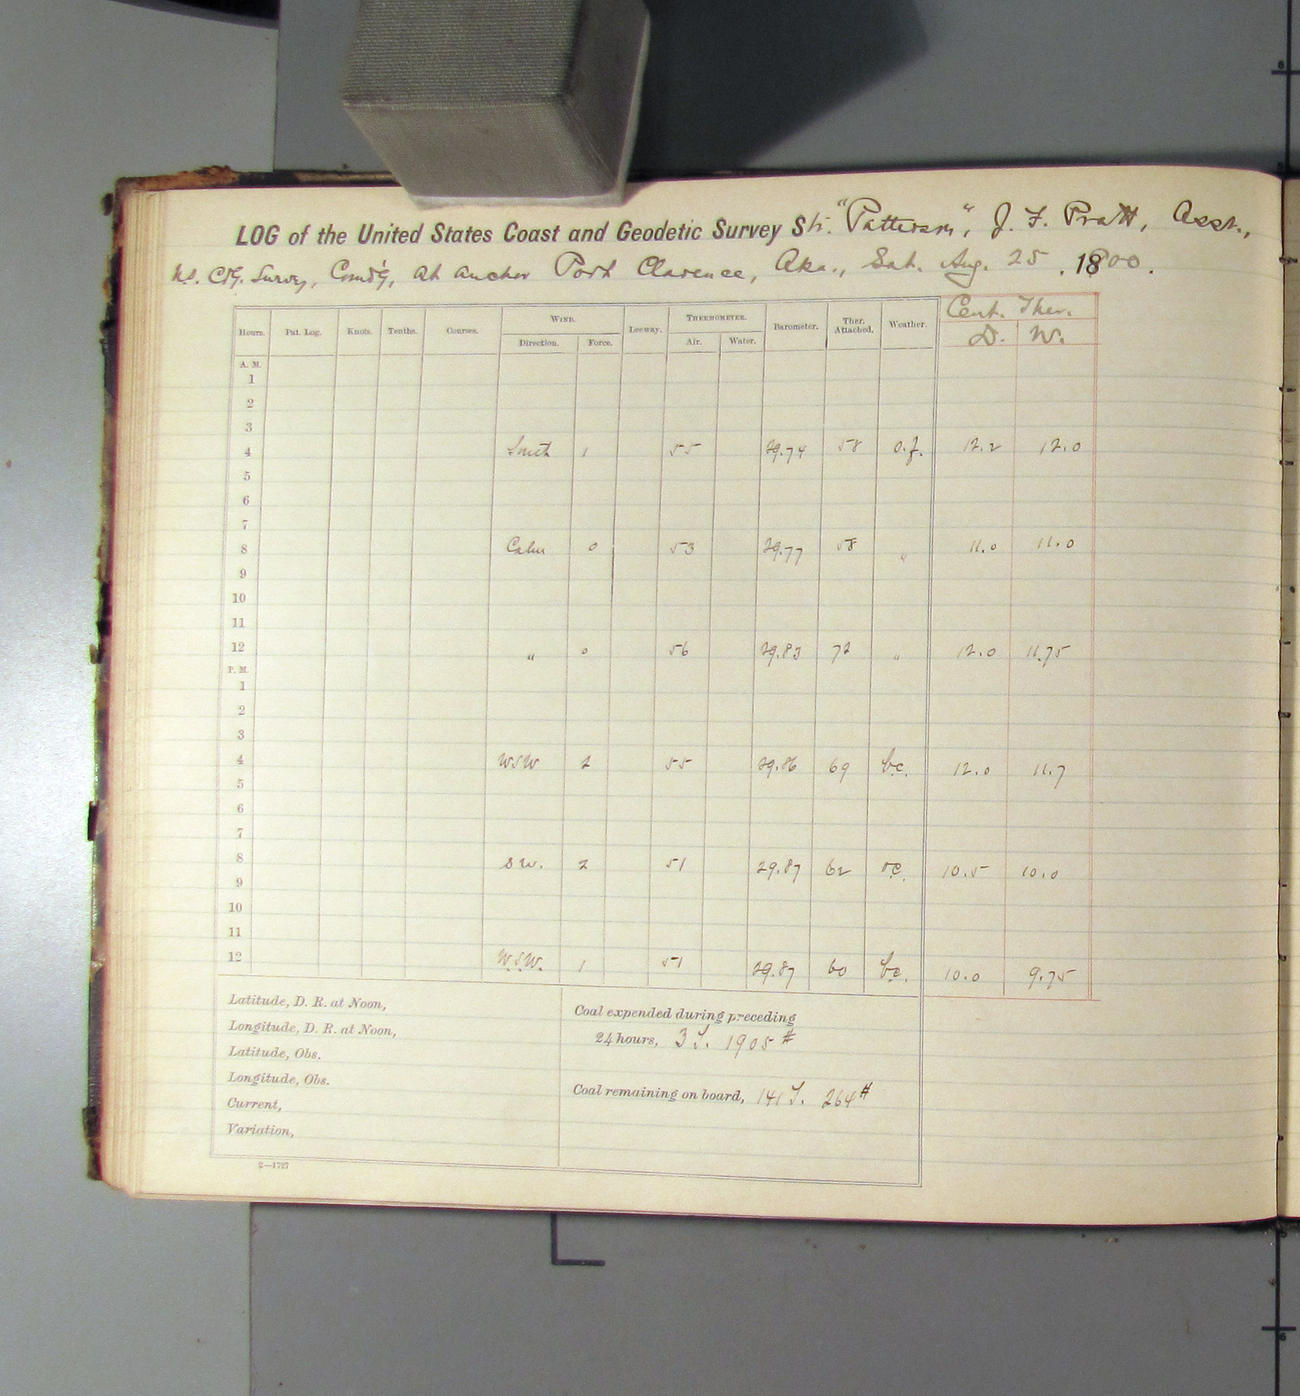 LOG of the United States Coast and Geodetic Survey Str. "Patterson", J. F. Pratt, Asst.,
Comd'g, At anchor Port Clarence, Aka., Sat. Aug. 25, 1800.
Hours. Pat. Log. Knots. Tenths. Courses. WIND. Leeway. THERMOMETER. Barometer. Ther. Attached. Weather. Cent. Ther.
Direction. Force. Air. Water. D. W.
A. M.
1
2
3
4 1 55 29.74 58 o.f. 12.2 12.0
5
6
7
8 Calm 0 53 29.77 58 " 11.0 11.0
9
10
11
12 " 0 56 29.83 72 " 12.0 11.75
P. M.
1
2
3
4 WSW 2 55 29.86 69 bc. 12.0 11.7
5
6
7
8 SW. 2 51 29.87 62 10.5 10.0
9
10
11
12 W.S.W. 1 51 29.87 60 bc. 10.0 9.75
Latitude, D. R. at Noon,
Longitude, D. R. at Noon,
Latitude, Obs.
Longitude, Obs.
Current,
Variation,
Coal expended during preceding
24 hours, 3 T. 1905 #
Coal remaining on board, 141 T. 264 #
2—1727